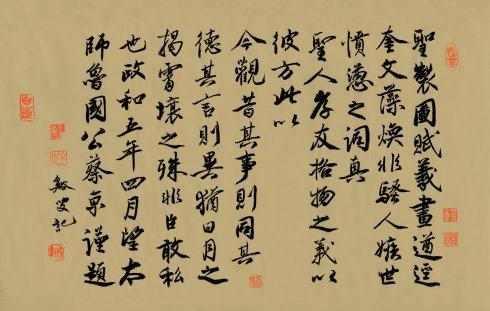 聖製圖賦羲畫遒逕
奎文藻煥非騷人嫉世
憤懣之詞真
聖人孝友格物之義以
彼方此以
今觀昔其事則同其
德其言則異猶日月之
揭霄壤之殊非臣敢私
也政和五年四月望太
師魯國公蔡京謹題
敏叟記